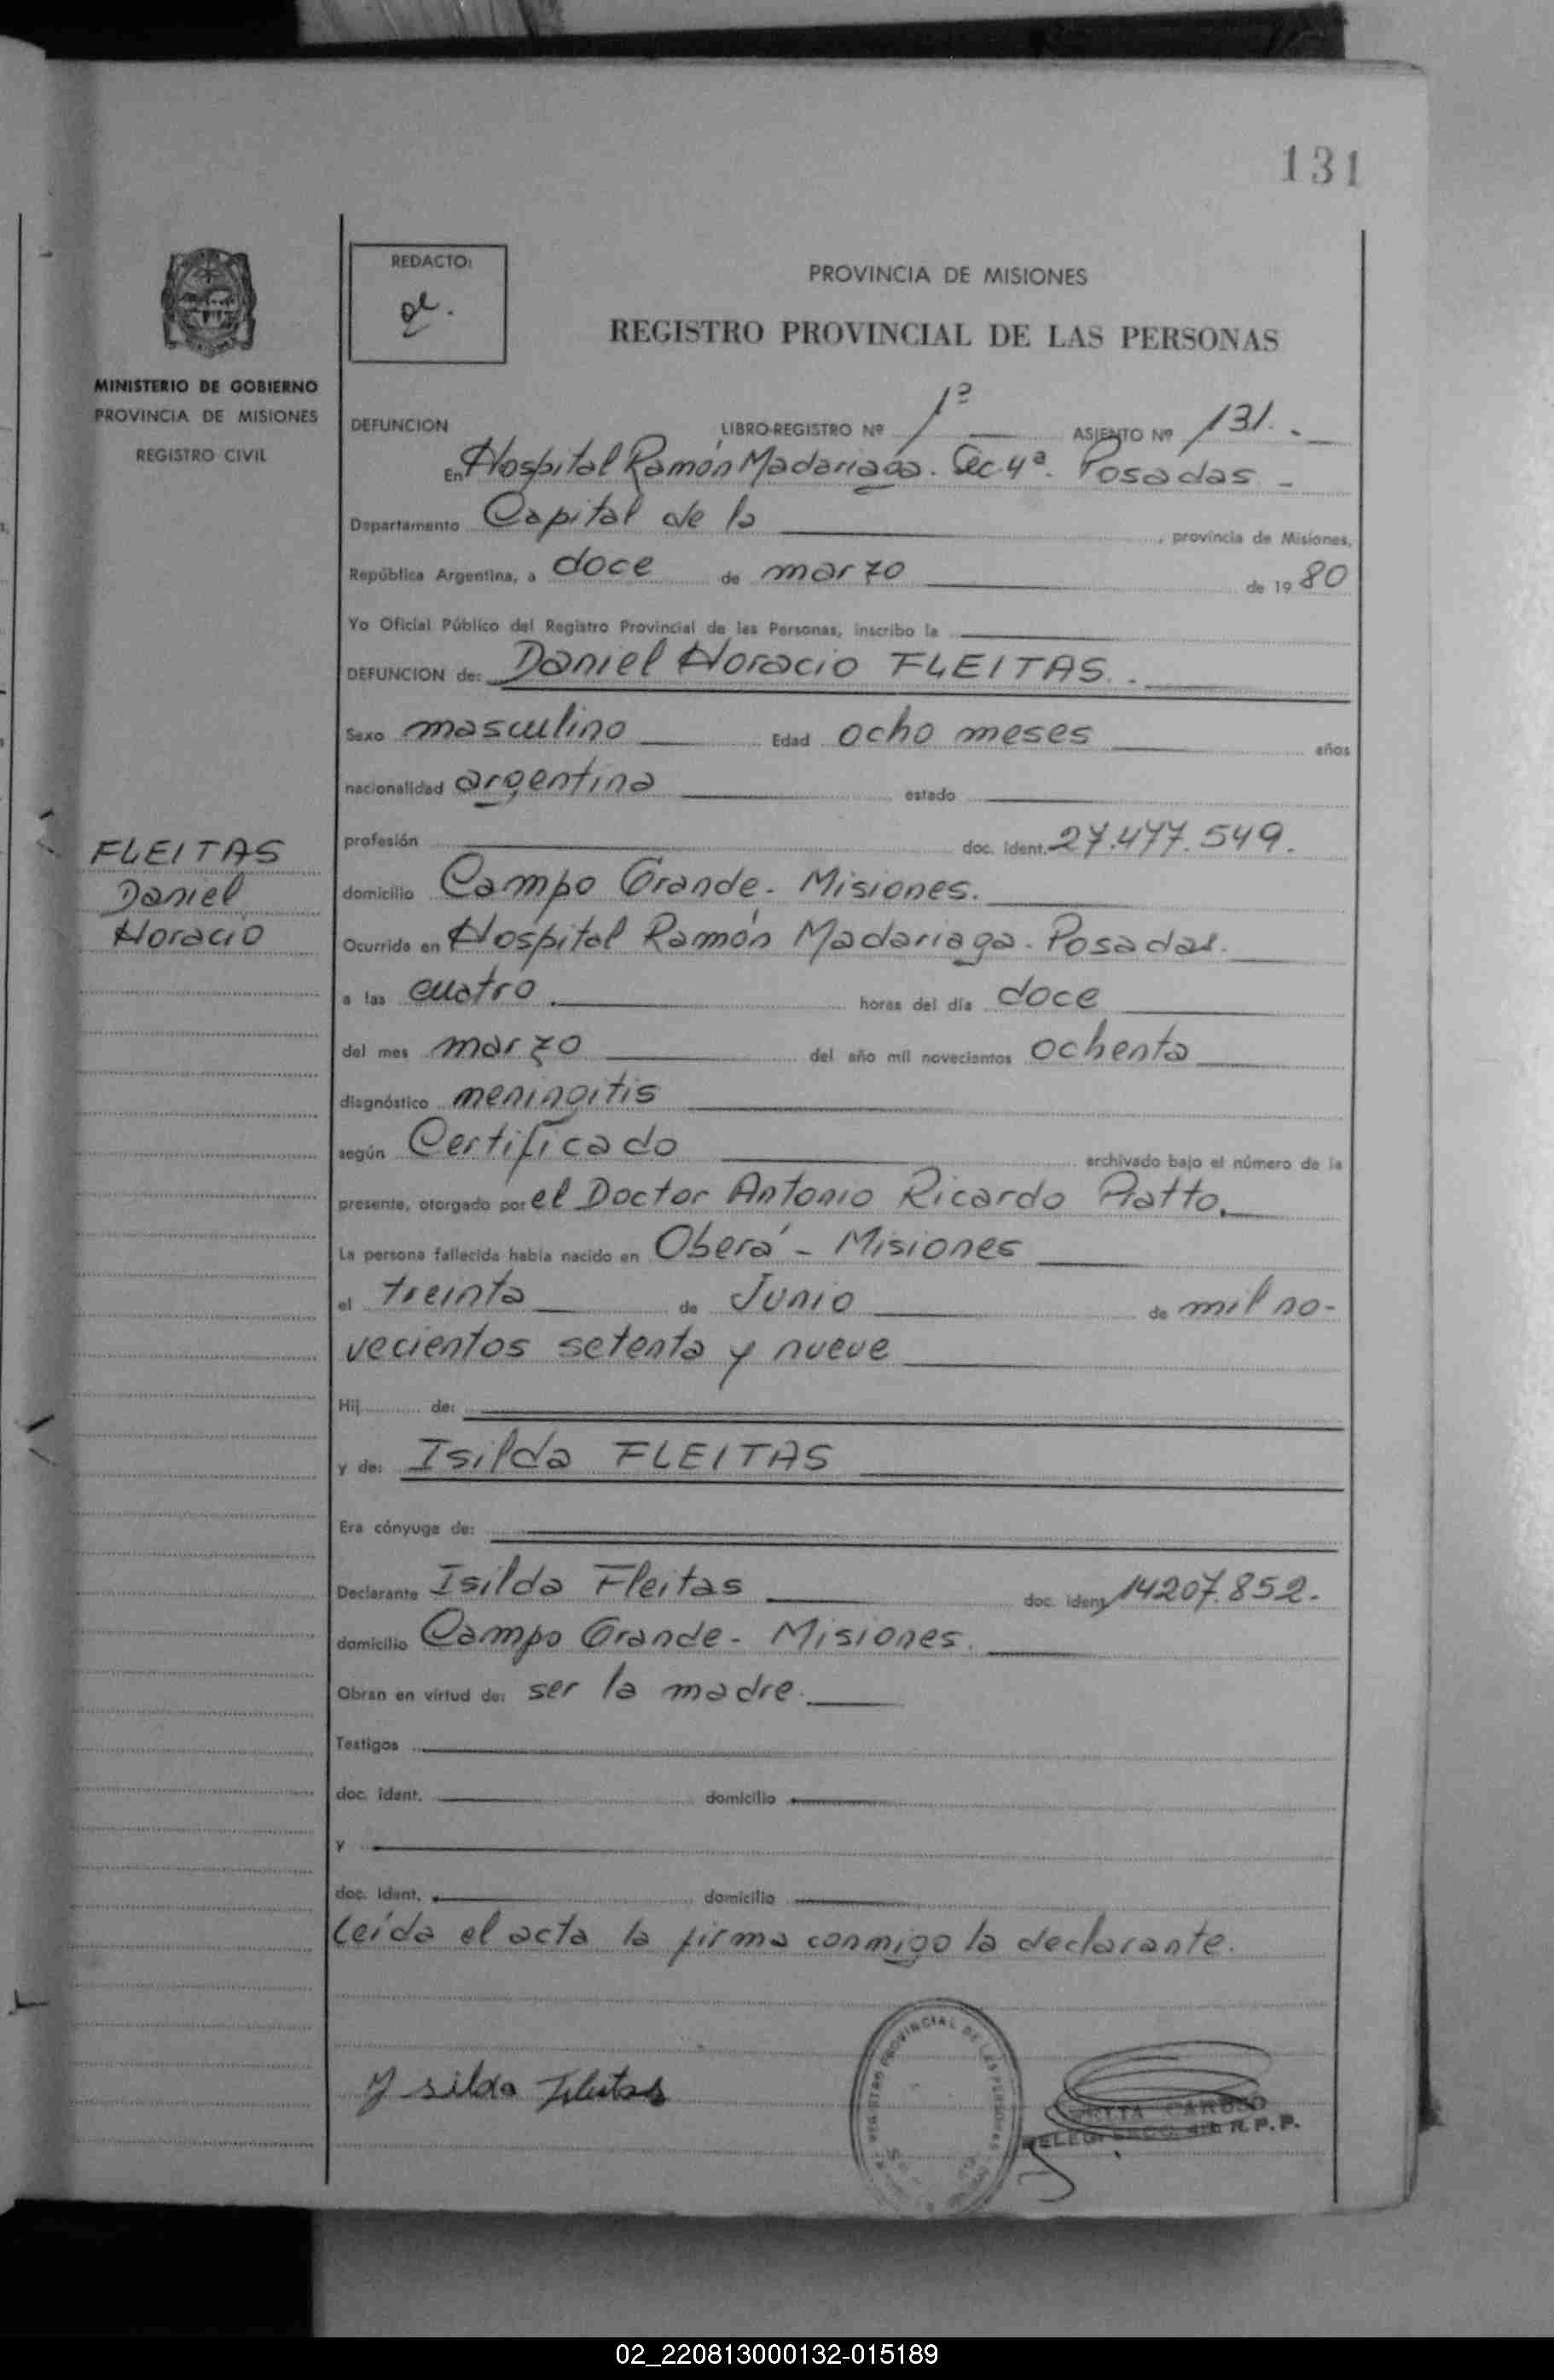 131
MINISTERIO DE GOBIERNO
PROVINCIA DE MISIONES
REGISTRO CIVIL
FLEITAS
Daniel
Horacio
REDACTO:
PROVINCIA DE MISIONES
REGISTRO PROVINCIAL DE LAS PERSONAS
DEFUNCION LIBRO-REGISTRO Nº 1º ASIENTO Nº 131.
En Hospital Ramón Madariaga. Sec. 4ª. Posadas
Departamento Capital de la , provincia de Misiones,
República Argentina, a doce de marzo de 19 80
Yo Oficial Público del Registro Provincial de las Personas, inscribo la
DEFUNCION de: Daniel Horacio FLEITAS.
Sexo masculino Edad ocho meses años
nacionalidad argentina estado
profesión doc. ident. 27.477.549.
domicilio Campo Grande - Misiones.
Ocurrida en Hospital Ramón Madariaga - Posadas.
a las cuatro horas del día doce
del mes marzo del año mil novecientos ochenta
diagnóstico meningitis
según Certificado archivado bajo el número de la
presente, otorgado por el Doctor Antonio Ricardo Piatto.
La persona fallecida había nacido en Oberá - Misiones
el treinta de Junio de mil no-
vecientos setenta y nueve
Hij de:
y de: Isilda FLEITAS
Era cónyuge de:
Declarante Isilda Fleitas doc. ident. 14207.852.
domicilio Campo Grande - Misiones.
Obran en virtud de: ser la madre.
Testigos
doc. ident. domicilio
y
doc. ident. domicilio
Leída el acta la firma conmigo la declarante.
Ysilda Fleitas
REGISTRO PROVINCIAL DE LAS PERSONAS
CARDSO
R.P.P.
02_220813000132-015189